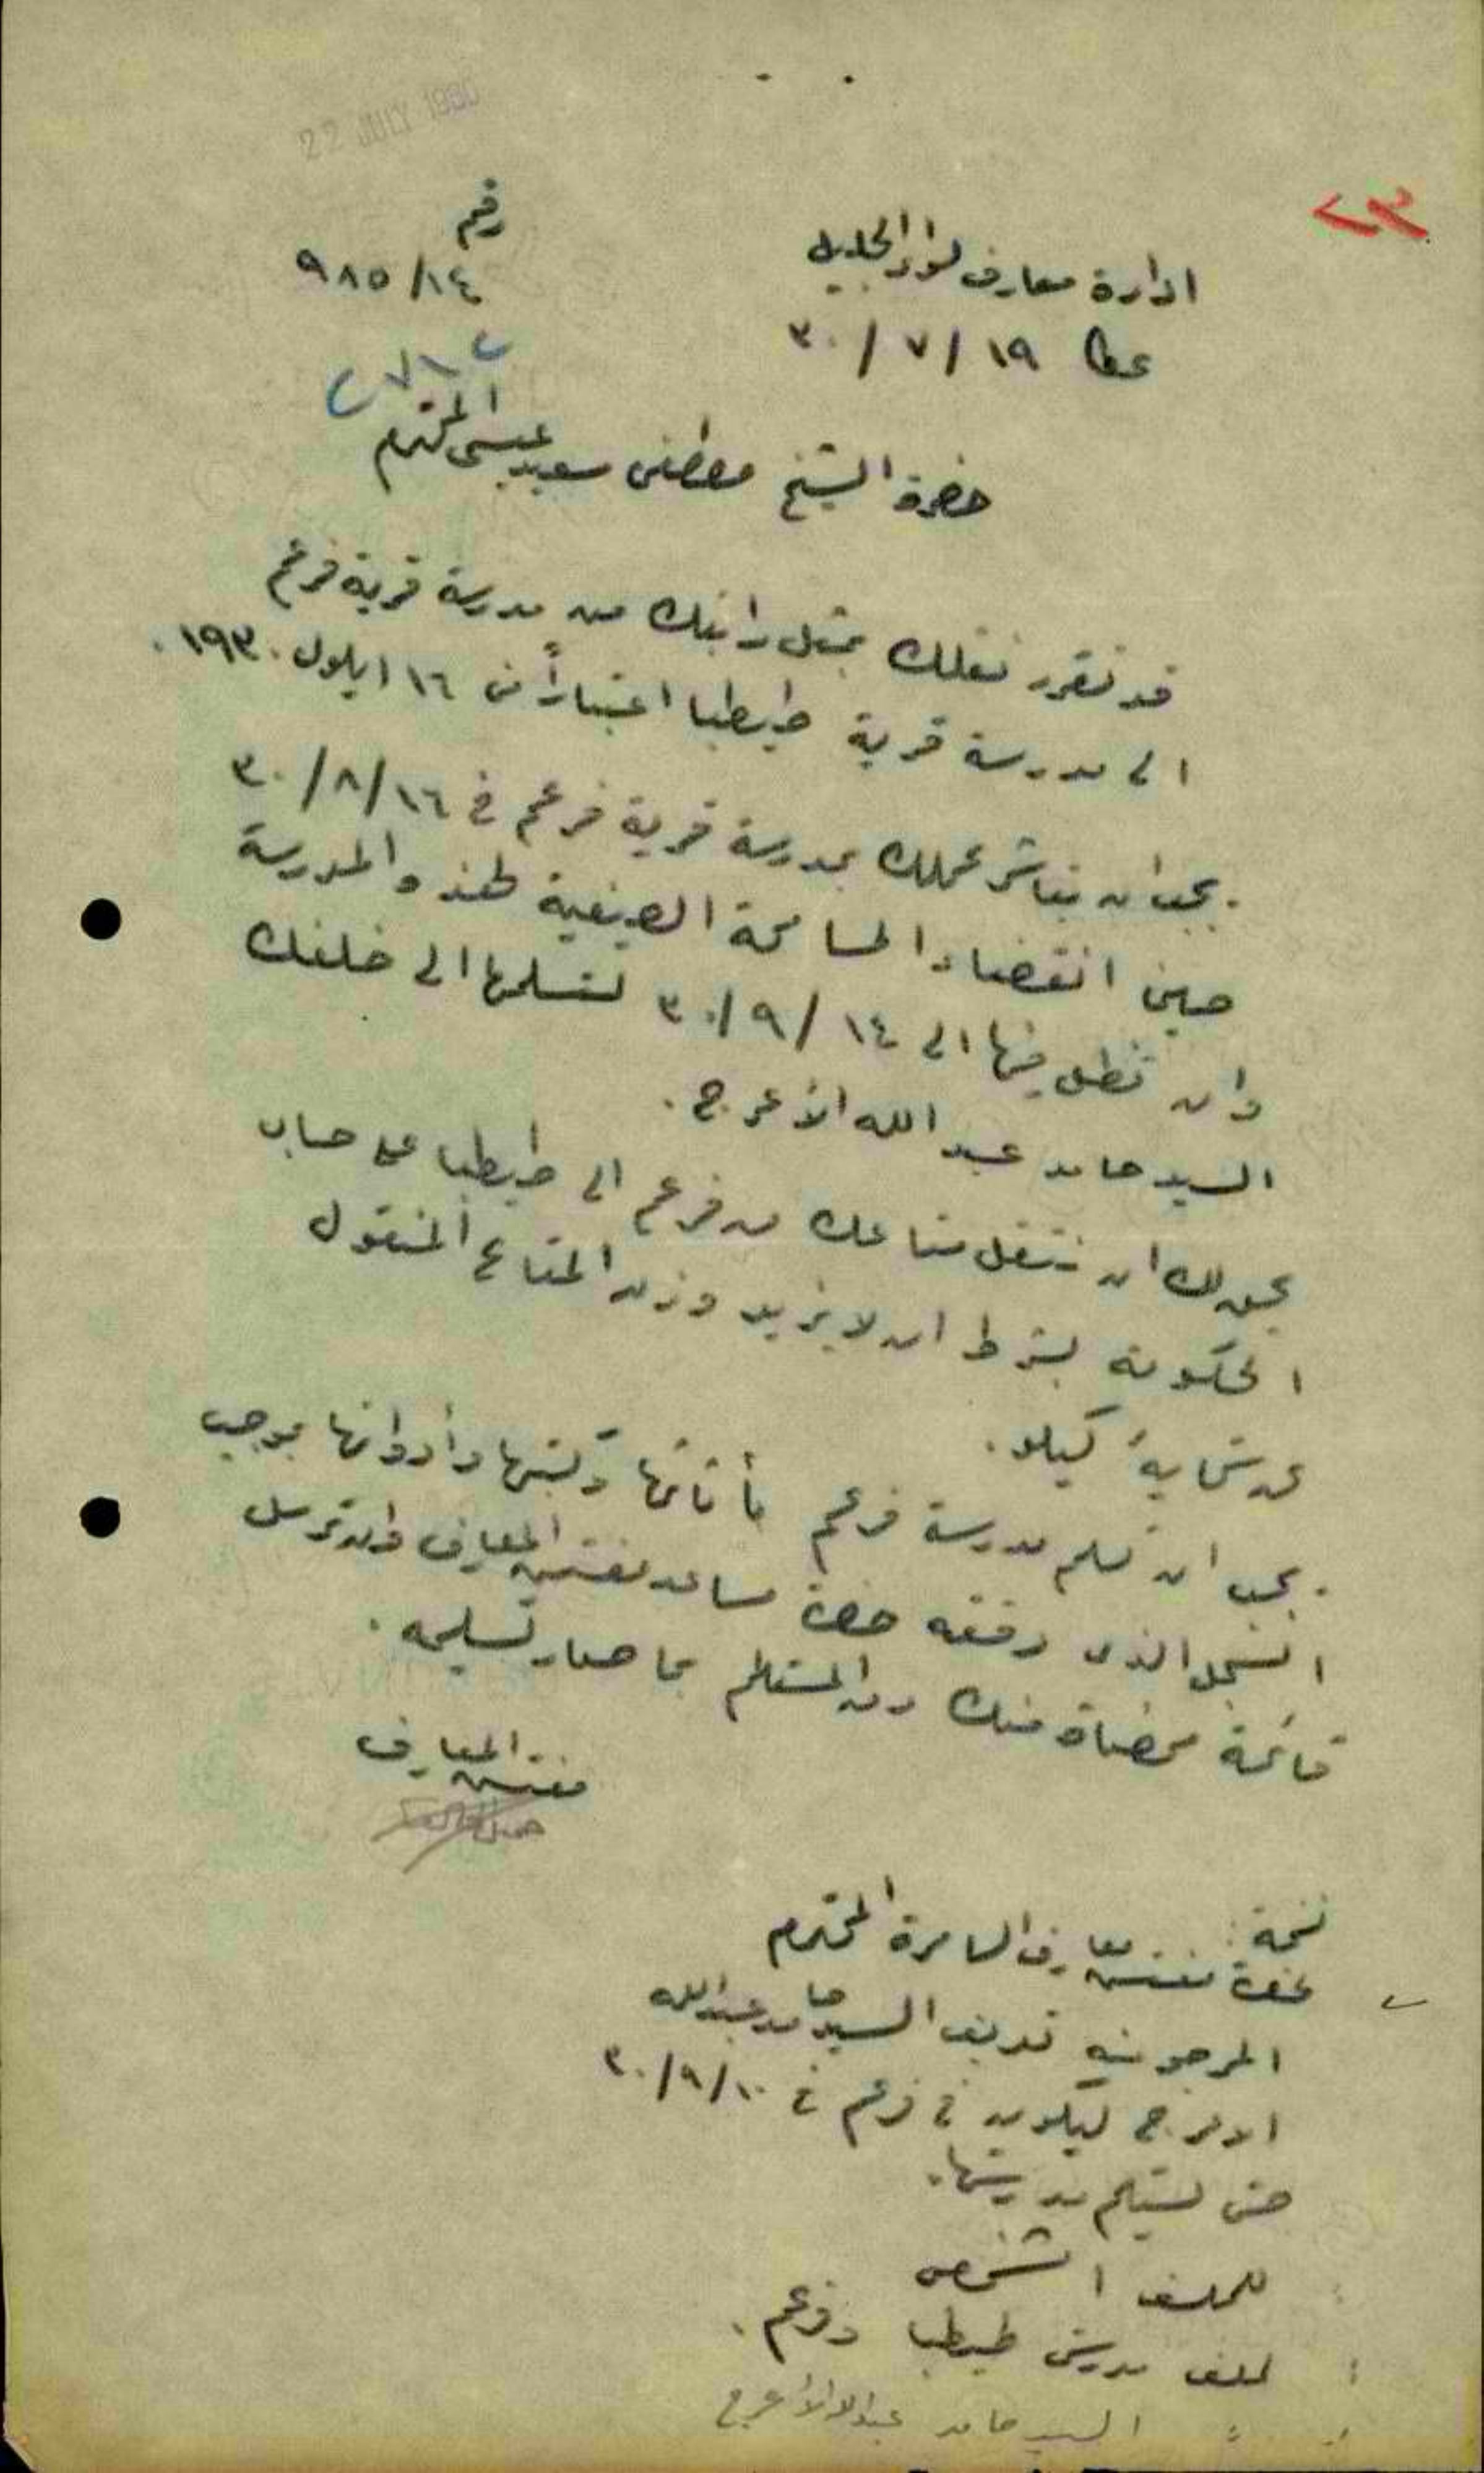 22 JULY 1930
٢٣
رقم
٩٨٥/١٤
ادارة معارف لواء الجليل
عكا ١٩ / ٧ / ٣٠
حضرة الشيخ مصطفى سعيد عيسى المحترم
قد تقرر نقلك بمثل راتبك من مدرسة قرية فرعم
الى مدرسة قرية طيطبا اعتباراً من ١٦ ايلول ١٩٣٠.
يجب ان تباشر عملك بمدرسة قرية فرعم في ١٦/٨/٣٠
حين انقضاء المسامحة الصيفية لهذه المدرسة
وان تظل فيها الى ١٤ /٩/ ٣٠ لتسلمها الى خلفك
السيد حامد عبد الله الأعرج.
يحق لك ان تنقل متاعك من فرعم الى طيطبا على حساب
الحكومة بشرط ان لا يزيد وزن المتاع المنقول
عن ستماية كيلو.
يجب ان تسلم مدرسة فرعم بأثاثها وكتبها وأدواتها بموجب
السجل الذي دققه حضرة مساعد مفتش المعارف وان ترسل
قائمة ممضاة منك ومن المستلم بما صار تسليمه.
مفتش المعارف
نسخة:
لحضرة مفتش معارف السامرة المحترم
المرجو منه تعريف السيد حامد عبدالله
الاعرج ليكون في فرعم في ١٠/٩/٣٠
حتى يستلم مدرستها.
للملف الشخصي
لملف مدرستي طيطبا وفرعم.
السيد حامد عبدالله الأعرج